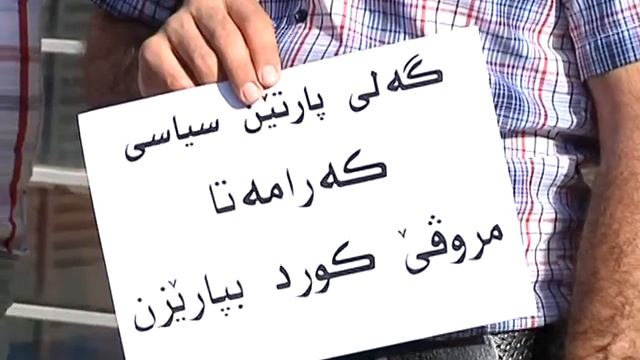 گەلی پارتێن سیاسی
کەرامەتا
مروڤێ کورد بپارێزن